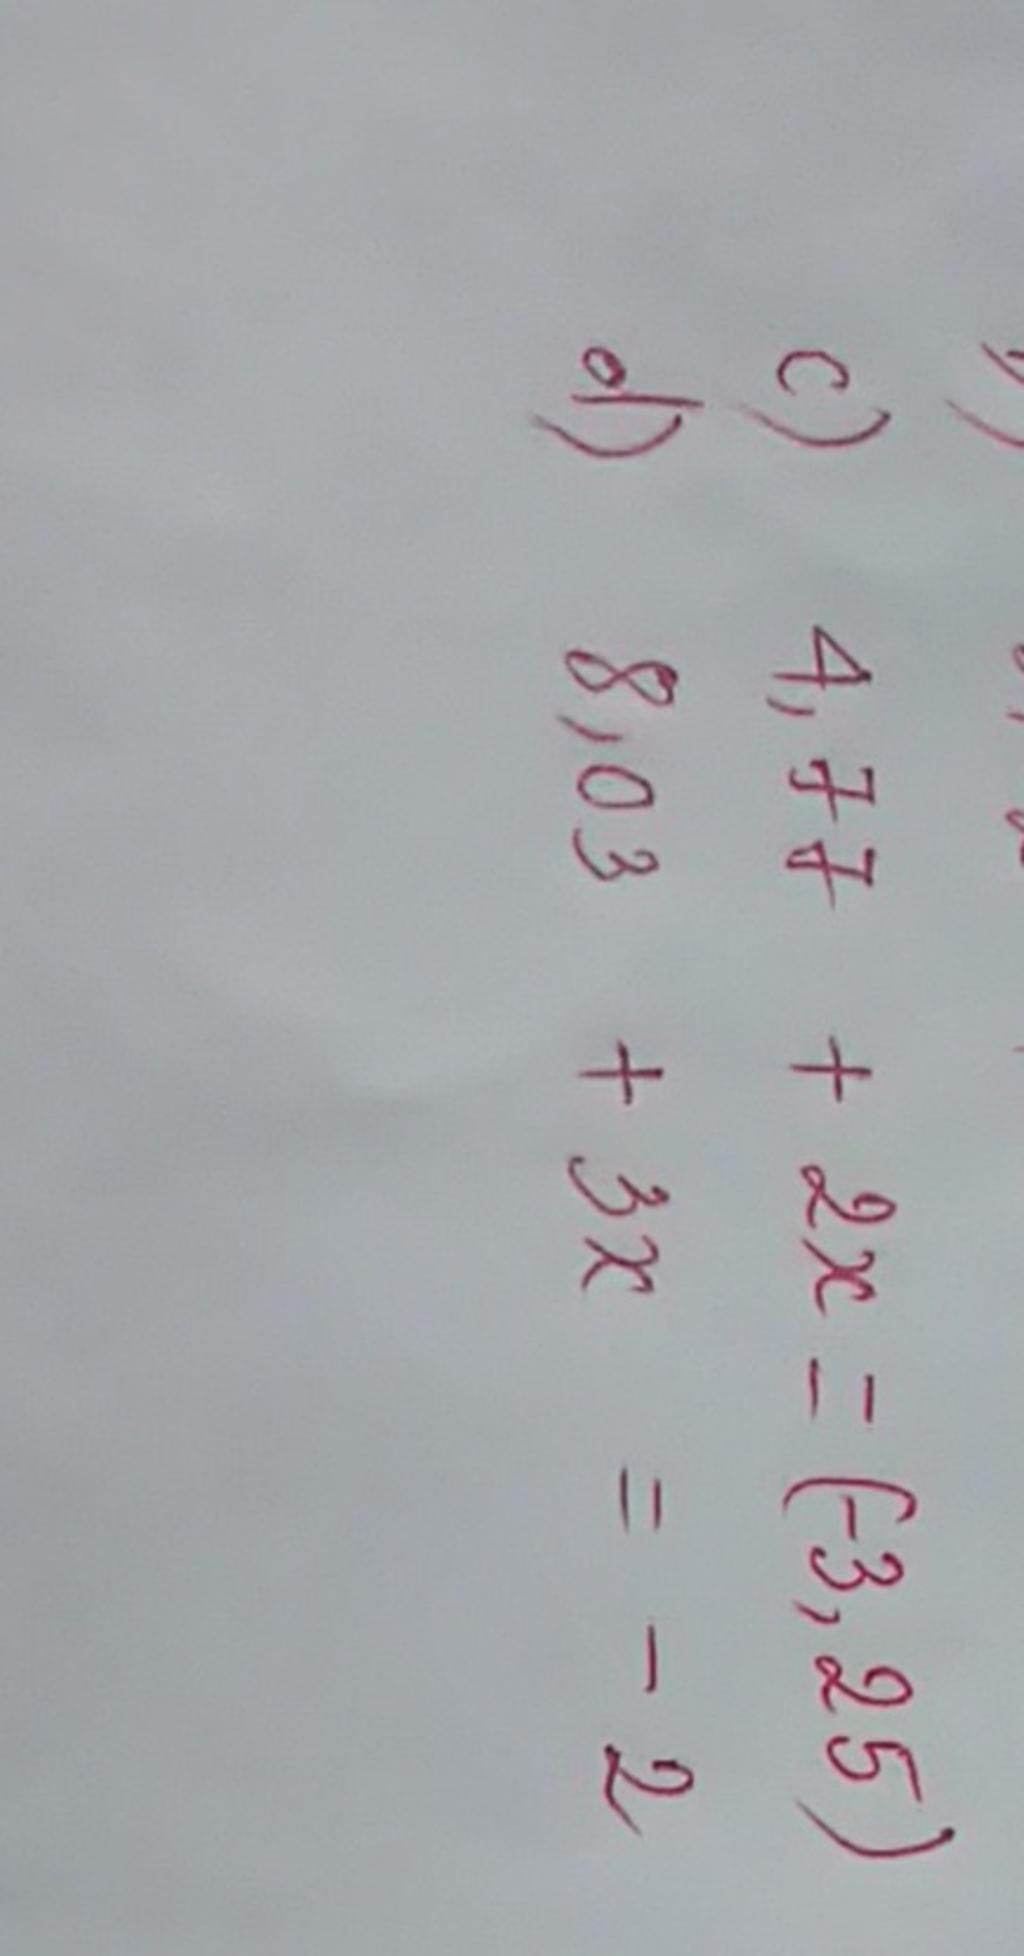 c) 4,77 + 2x = (-3,25)
d) 8,03 + 3x = -2